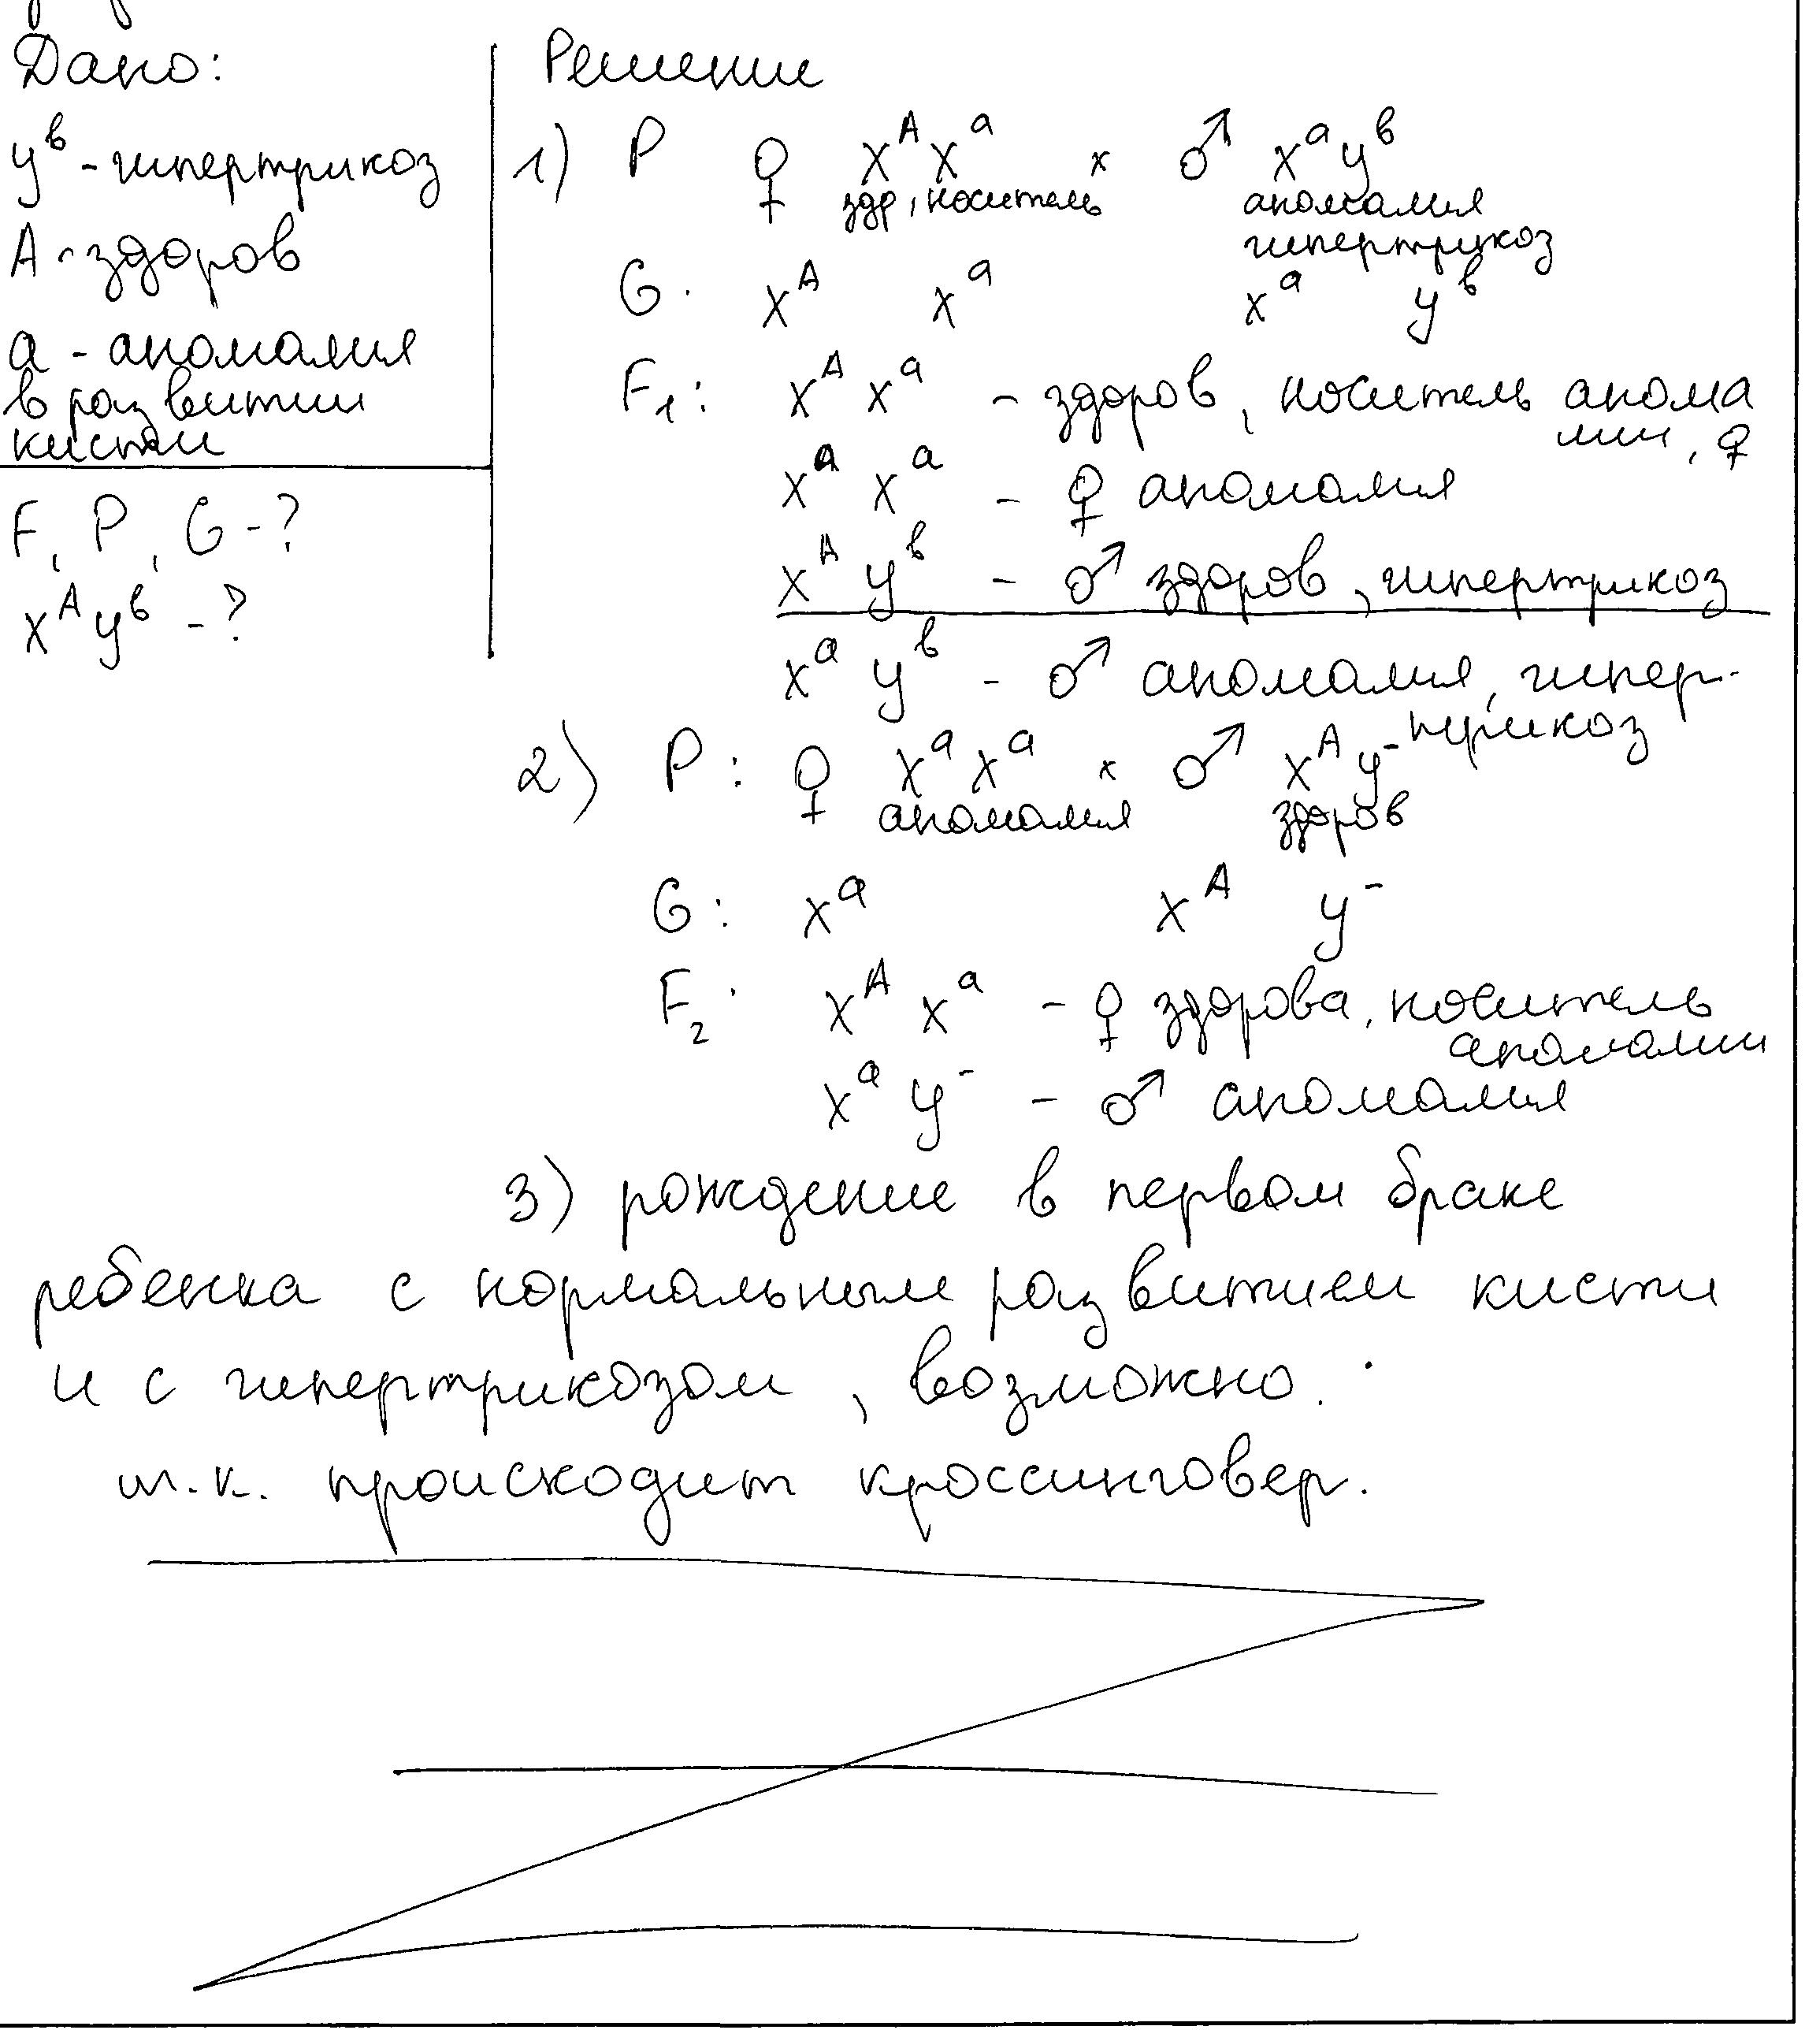 Дано:
y^в - гипертрикоз
A - здоров
a - аномалия
в развитии
кисти
F, P, G - ?
x^A y^в - ?
Решение
1) P ♀ x^A x^a × ♂ x^a y^в
здр, носитель аномалия
гипертрикоз
G. x^A x^a x^a y^в
F1: x^A x^a - здоров, носитель анома
лии, ♀
x^a x^a - ♀ аномалия
x^A y^в - ♂ здоров, гипертрикоз
x^a y^в - ♂ аномалия, гипер-
трикоз
2) P: ♀ x^a x^a × ♂ x^A y^-
аномалия здоров
G: x^a x^A y^-
F2: x^A x^a - ♀ здорова, носитель
аномалии
x^a y^- - ♂ аномалия
3) рождение в первом браке
ребенка с нормальным развитием кисти
и с гипертрикозом, возможно.
т.к. происходит кроссинговер.